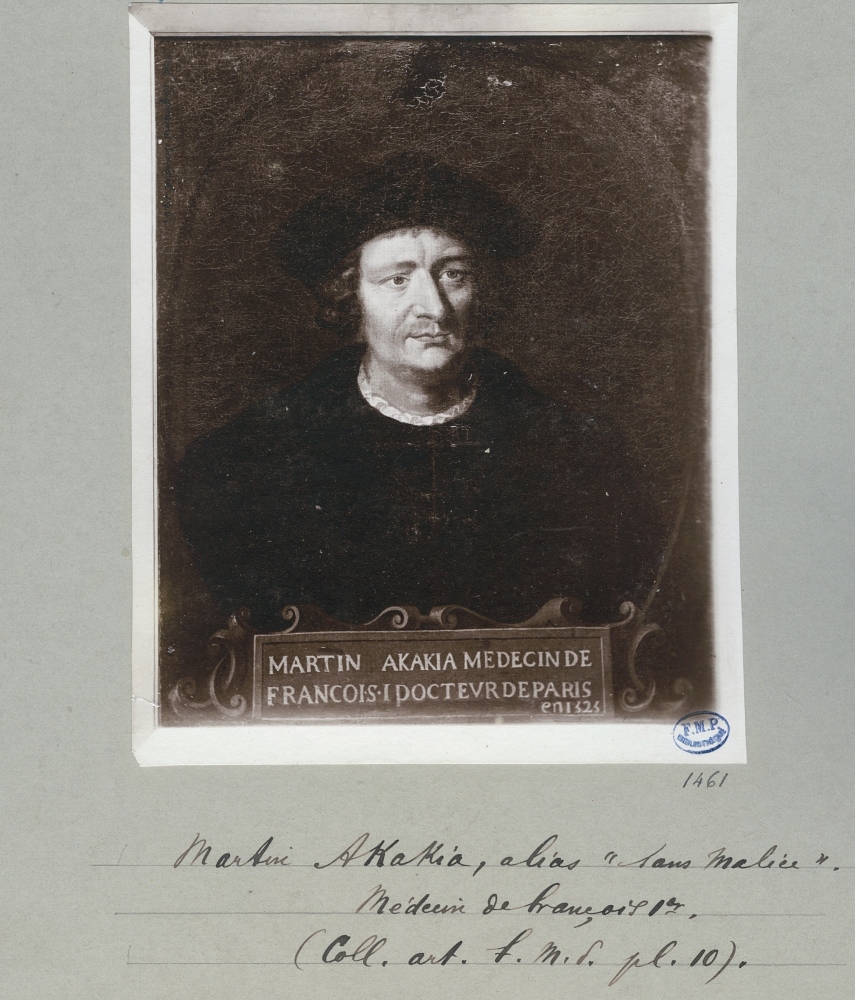 MARTIN AKAKIA MEDECIN DE
FRANCOIS·I DOCTEVR DE PARIS
en 1523
F.M.P.
1461
Martin AKaKia, alias "Sans Malice".
Médecin de François 1er.
(Coll. art. f. M. d. pl. 10).